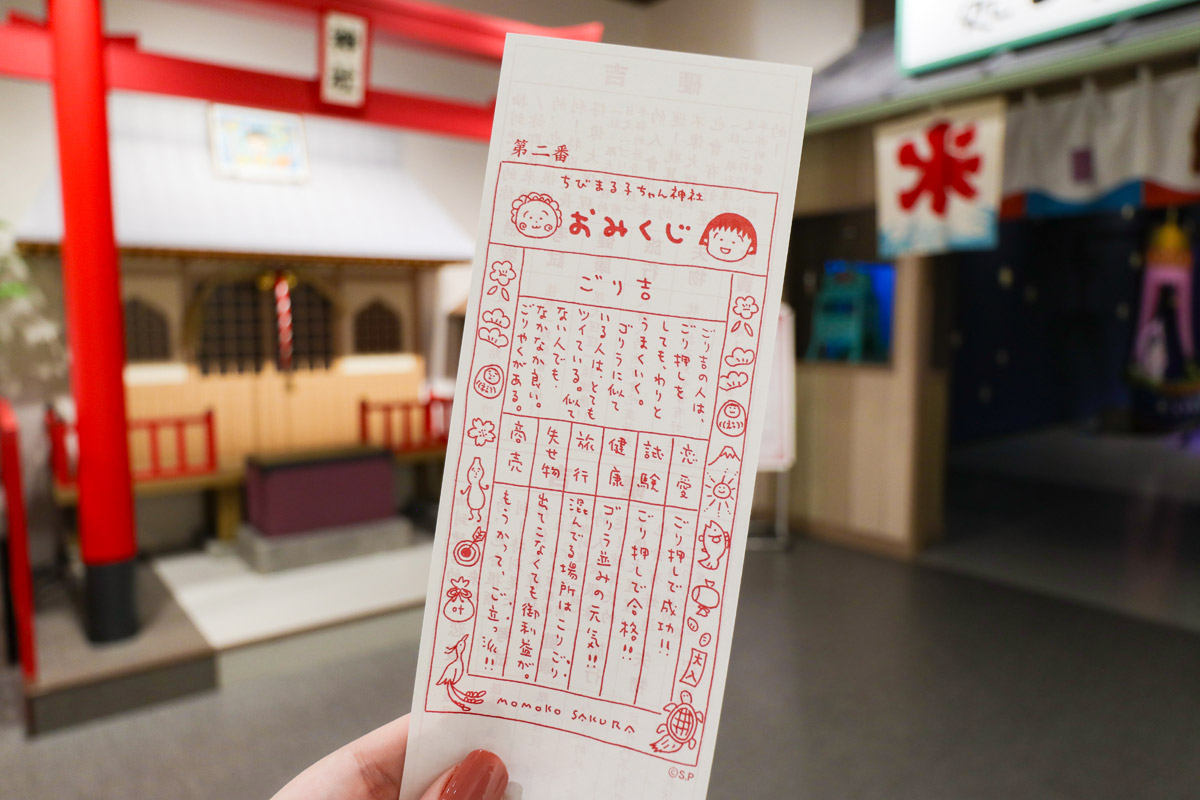 第二番
ちびまる子ちゃん神社
おみくじ
ごり吉
ごり吉の人は、
ごり押しを
しても、わりと
うまくいく。
ゴリラに似て
いる人は、とても
ツイている。似て
ない人でも、
なかなか良い。
ごりやくがある。
恋愛 ごり押しで成功!!
試験 ごり押しで合格!!
健康 ゴリラ並みの元気!!
旅行 混んでる場所はこりごり。
失せ物 出てこなくても御利益が。
商売 もうかって、ご立っ派!!
ほまれ
ほまれ
叶
大入
MOMOKO SAKURA
©S.P
神社
氷